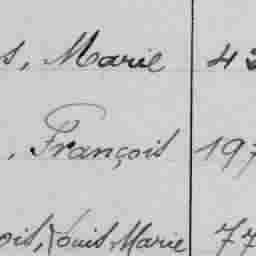 s, Marie 42
, François 197
ois, Louis Marie 77